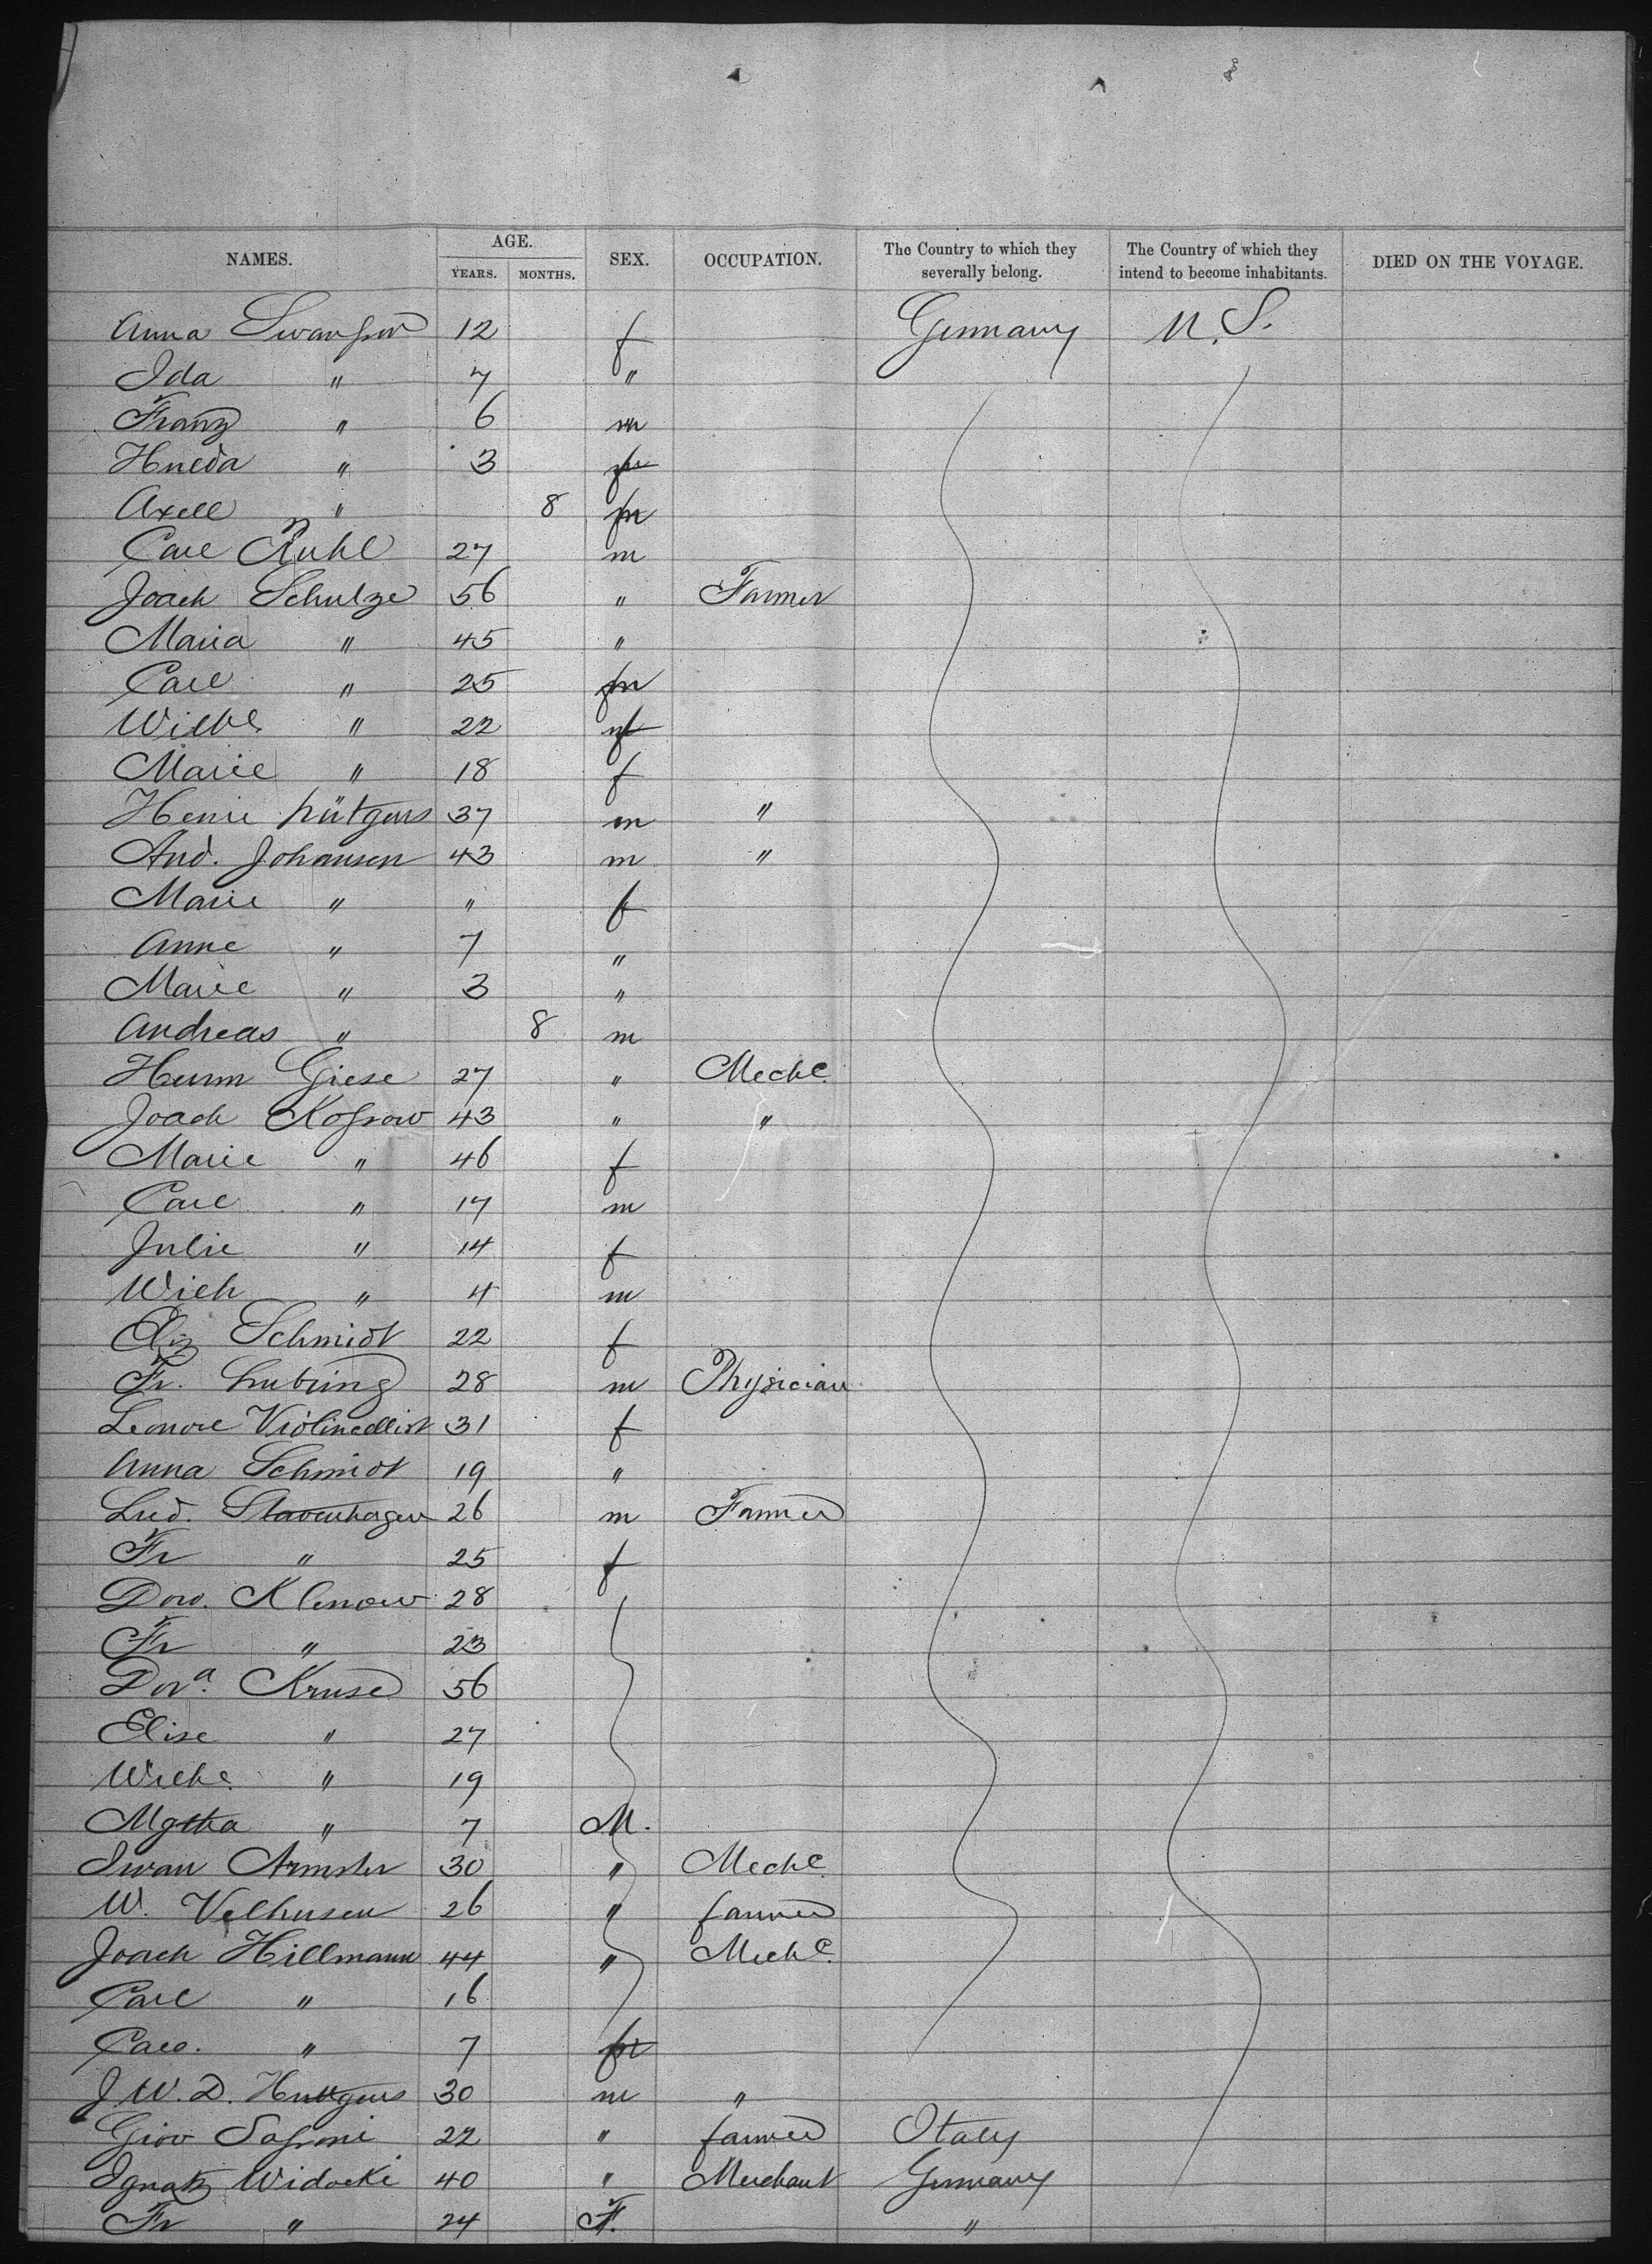 NAMES. AGE. YEARS. MONTHS. SEX. OCCUPATION. The Country to which they severally belong. The Country of which they intend to become inhabitants. DIED ON THE VOYAGE.
Anna Swansson 12 f Germany U.S.
Ida " 7 "
Franz " 6 m
" 3
Axell " 8 m
Carl Kuhl 27 m
Joach Schulze 56 " Farmer
Maria " 45 "
Carl " 25 m
Wilhe " 22 f
Marie " 18 f
Henri Lütgens 37 m "
And. Johansen 43 m "
Marie " " f
Anne " 7 "
Marie " 3 "
Andreas " 8 m
Herm Giese 27 " Mechc
Joach Kossow 43 " "
Marie " 46 f
Carl " 17 m
Julie " 14 f
Wilh " 4 m
Eliz Schmidt 22 f
Fr. Lubring 28 m Physician
Leonore Violincellist 31 f
Anna Schmidt 19 "
Lud. Stavenhagen 26 m Farmer
Fr " 25 f
Doro. Klenow 28
Fr " 23
Dora. Kruse 56
Elise " 27
Wilhe. " 19
Mgtha " 7 M.
Swan Armster 30 " Mechc
W. Velhusen 26 " farmer
Joach Hillmann 44 " Mechc.
Carl " 16
Caro. " 7
J. W. D. Huttgens 30 m "
Giov Sassoni 22 " farmer Italy
Ignatz Widocki 40 " Merchant Germany
Fr " 24 F. "